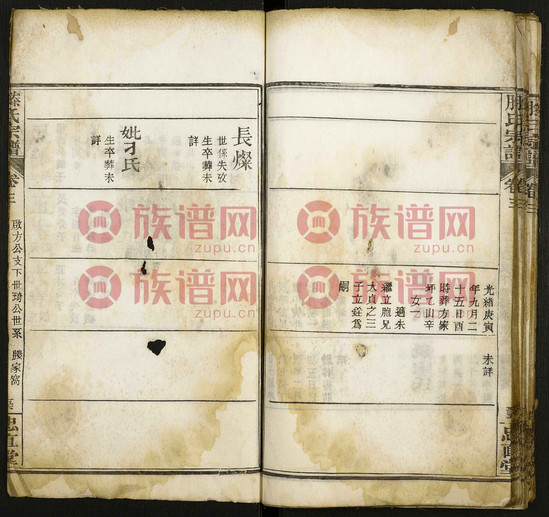 光緒庚寅
年九月二
十五日酉
時葬方家
坪乙山辛
未詳
適朱
女一
繼立胞兄
大貞之三
子立銓爲
嗣
長燦
世係失攷
生卒葬未
詳
妣刁氏
生卒葬未
詳
滕氏宗譜
卷三
啟方公支下世琦公世系
滕家窩
忠直堂
族谱网
zupu.cn
族谱网
zupu.cn
族谱网
zupu.cn
族谱网
zupu.cn